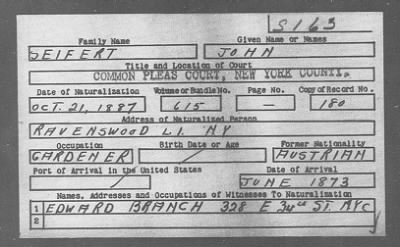 S163
Family Name Given Name or Names
SEIFERT JOHN
Title and Location of Court
COMMON PLEAS COURT, NEW YORK COUNTY.
Date of Naturalization Volume or Bundle No. Page No. Copy of Record No.
OCT. 21, 1887 615 — 180
Address of Naturalized Person
RAVENSWOOD L.I. NY
Occupation Birth Date or Age Former Nationality
GARDENER / AUSTRIAN
Port of Arrival in the United States Date of Arrival
/ JUNE 1873
Names, Addresses and Occupations of Witnesses To Naturalization
1 EDWARD BRANCH 328 E 34th ST. NYC
2